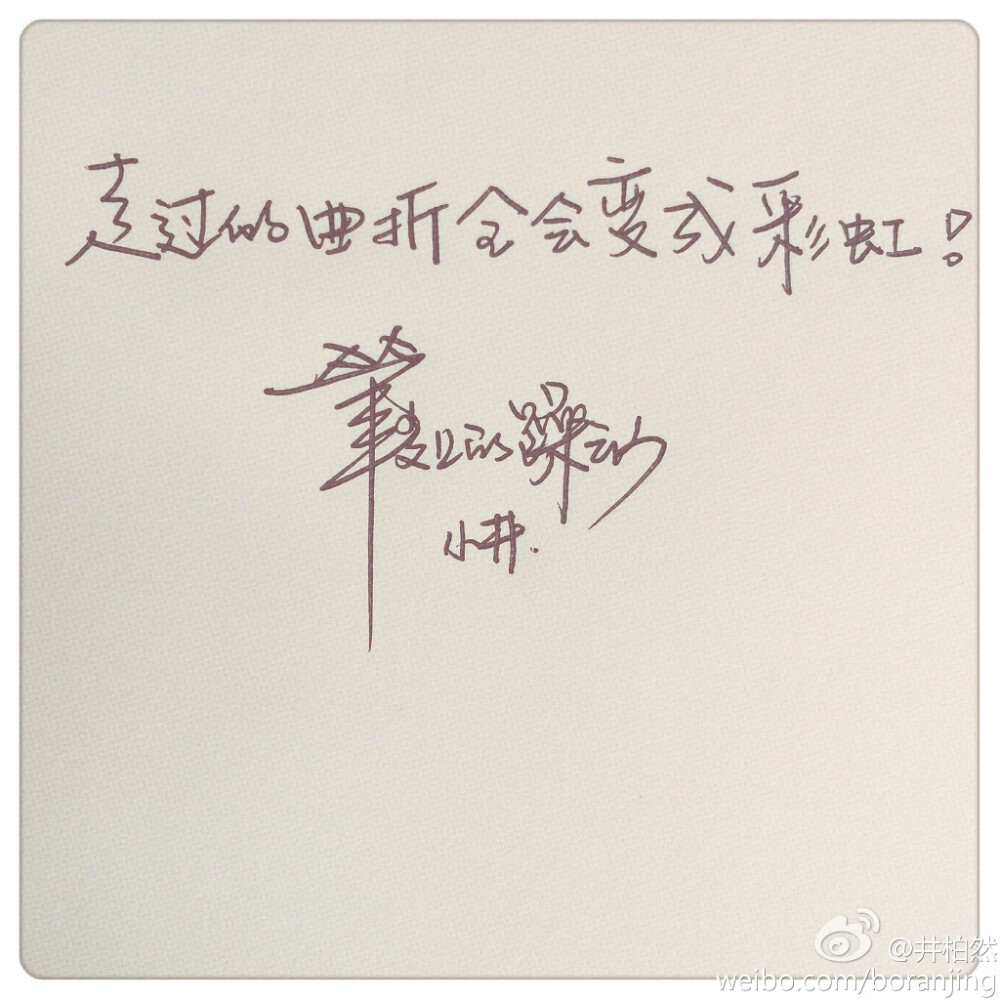 走过的曲折全会变成彩虹！
笔迹的躁动
小井.
@井柏然
weibo.com/boranjing